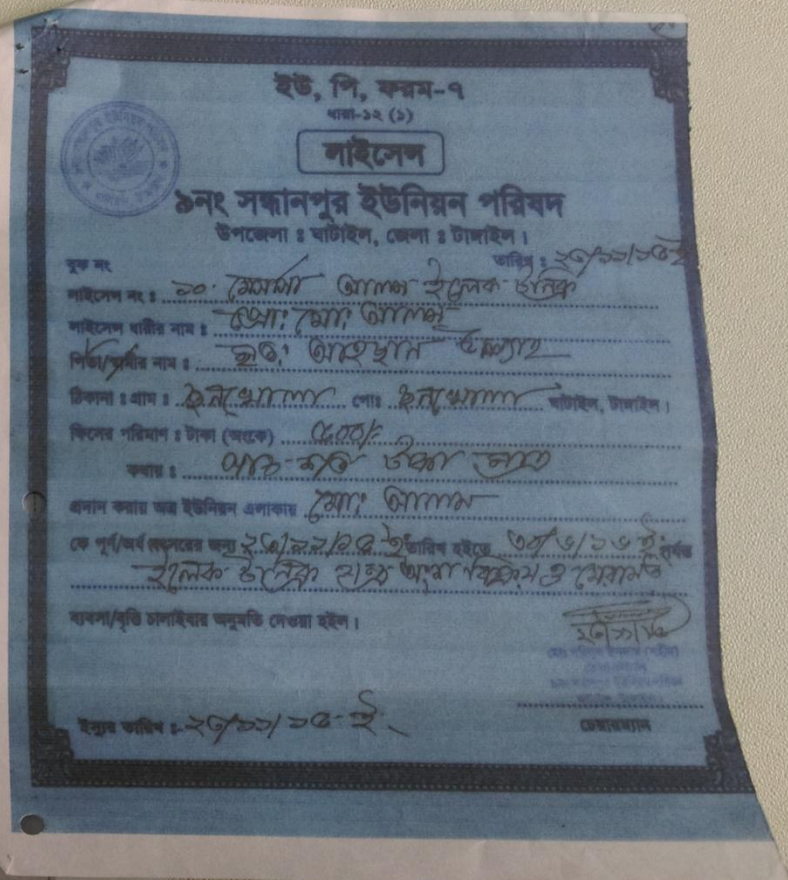 ইউ, পি, ফরম-৭
ধারা-১২ (১)
লাইসেন্স
৯নং সন্ধানপুর ইউনিয়ন পরিষদ
উপজেলা : ঘাটাইল, জেলা : টাঙ্গাইল।
বুক নং তারিখ :
লাইসেন্স নং : ১০. মেসার্স আলম ইলেকট্রনিক্স
লাইসেন্স ধারীর নাম : প্রো: মো: আলম
পিতা/স্বামীর নাম : মৃত: আহছান উল্যাহ
ঠিকানা : গ্রাম : ছনখোলা পো: ছনখোলা ঘাটাইল, টাঙ্গাইল।
ফিসের পরিমাণ : টাকা (অংকে) ৫০০/=
কথায় : পাঁচ শত টাকা মাত্র
প্রদান করায় অত্র ইউনিয়ন এলাকায় মো: আলম
কে পূর্ণ/অর্ধ বৎসরের জন্য তারিখ হইতে ৩০/৬/১৬ ই: পর্যন্ত
ইলেকট্রনিক্স বিক্রয় ও মেরামত
ব্যবসা/বৃত্তি চালাইবার অনুমতি দেওয়া হইল।
ইস্যুর তারিখ :
চেয়ারম্যান